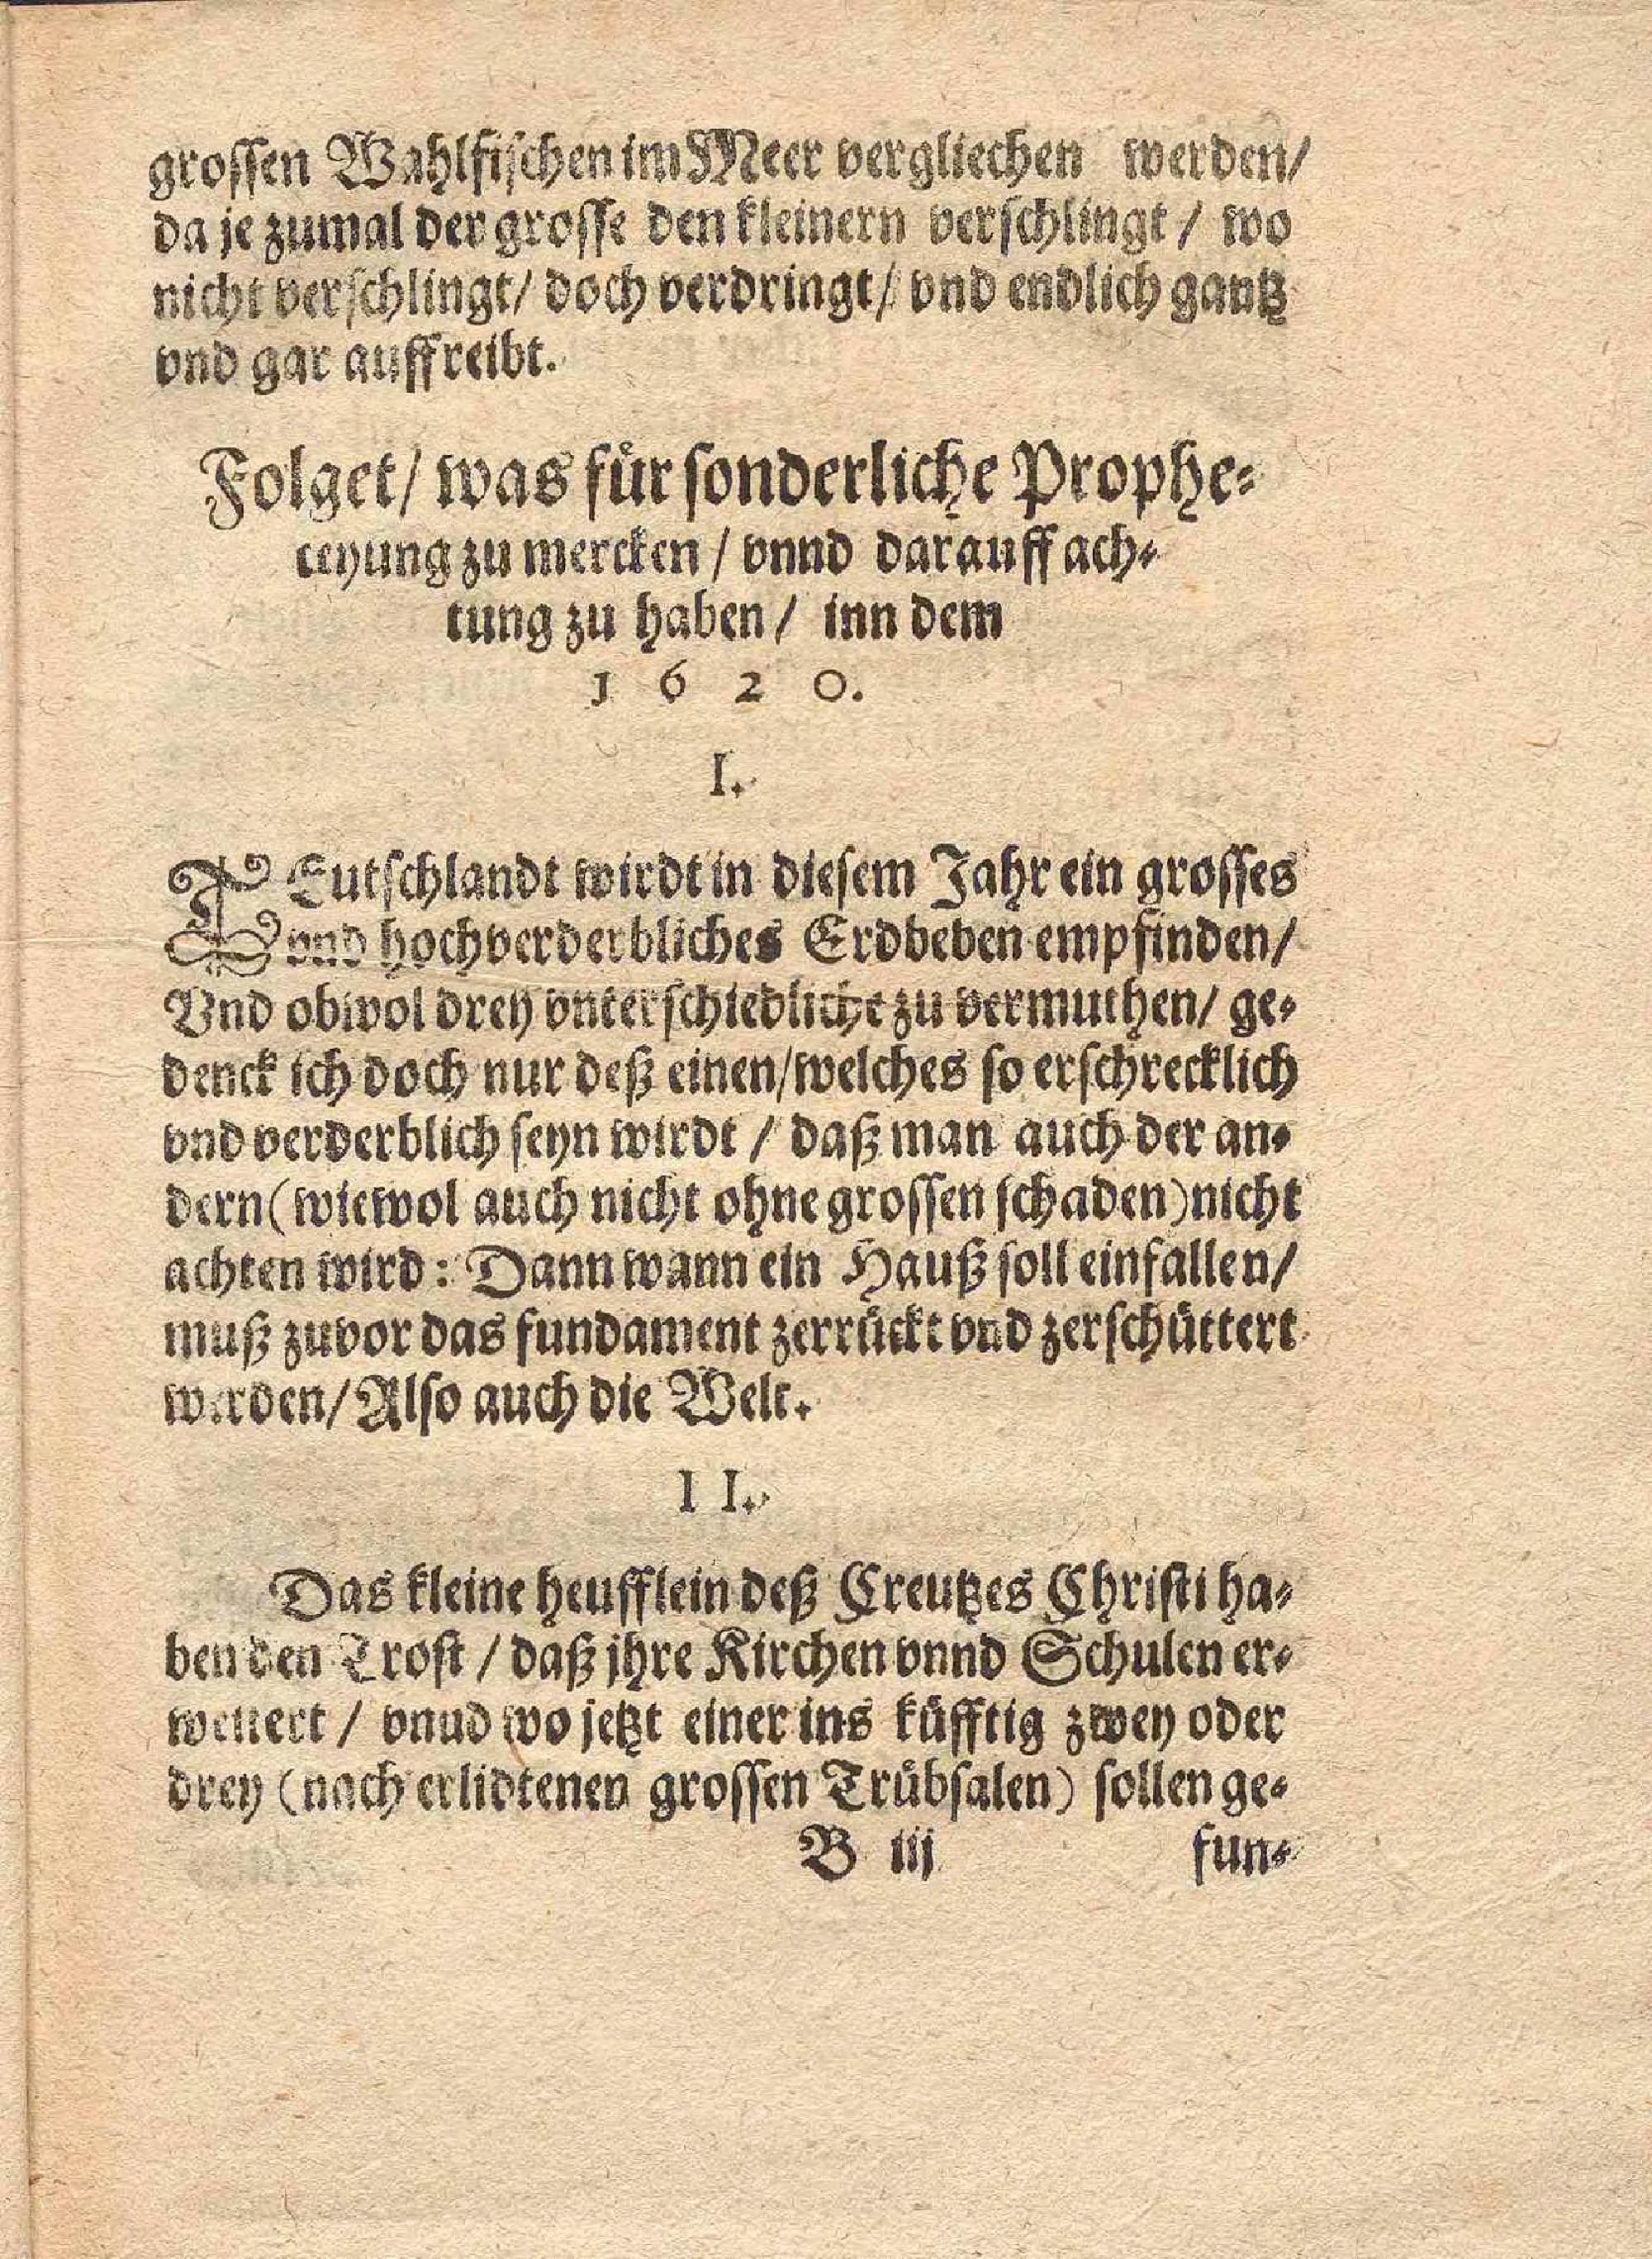 grossen Wahlfischen im Meer vergliechen werden/
da je zumal der grosse den kleinern verschlingt / wo
nicht verschlingt/ doch verdringt/ vnd endlich gantz
vnd gar auffreibt.
Folget/ was für sonderliche Prophe-
ceyung zu mercken / vnnd darauff ach-
tung zu haben / inn dem
1 6 2 0.
I.
TEutschlandt wirdt in diesem Jahr ein grosses
vnd hochverderbliches Erdbeben empfinden/
Vnd obwol drey vnterschiedliche zu vermuthen/ ge-
denck ich doch nur deß einen/welches so erschrecklich
vnd verderblich seyn wirdt / daß man auch der an-
dern (wiewol auch nicht ohne grossen schaden) nicht
achten wird: Dann wann ein Hauß soll einfallen/
muß zuvor das fundament zerrückt vnd zerschüttert
werden/Also auch die Welt.
I I.
Das kleine heufflein deß Creutzes Christi ha-
ben den Trost / daß jhre Kirchen vnnd Schulen er-
weitert / vnnd wo jetzt einer ins küfftig zwey oder
drey (nach erlidtenen grossen Trübsalen) sollen ge-
B iij fun-